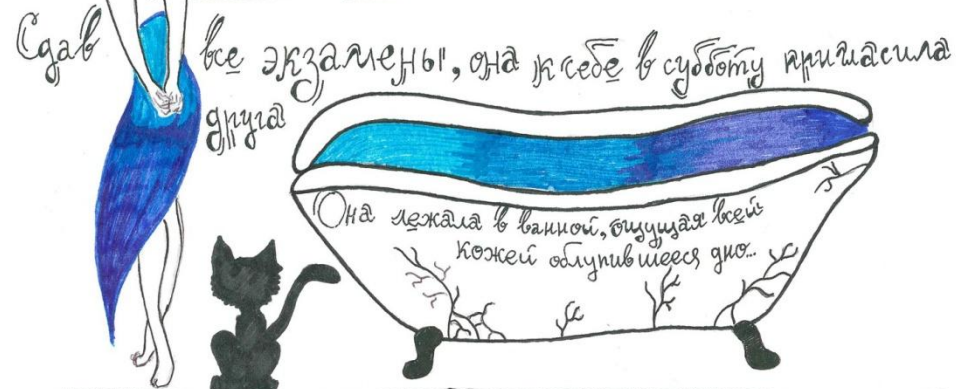 Сдав все экзамены, она к себе в субботу пригласила
друга
Она лежала в ванной, ощущая всей
кожей облупившееся дно...